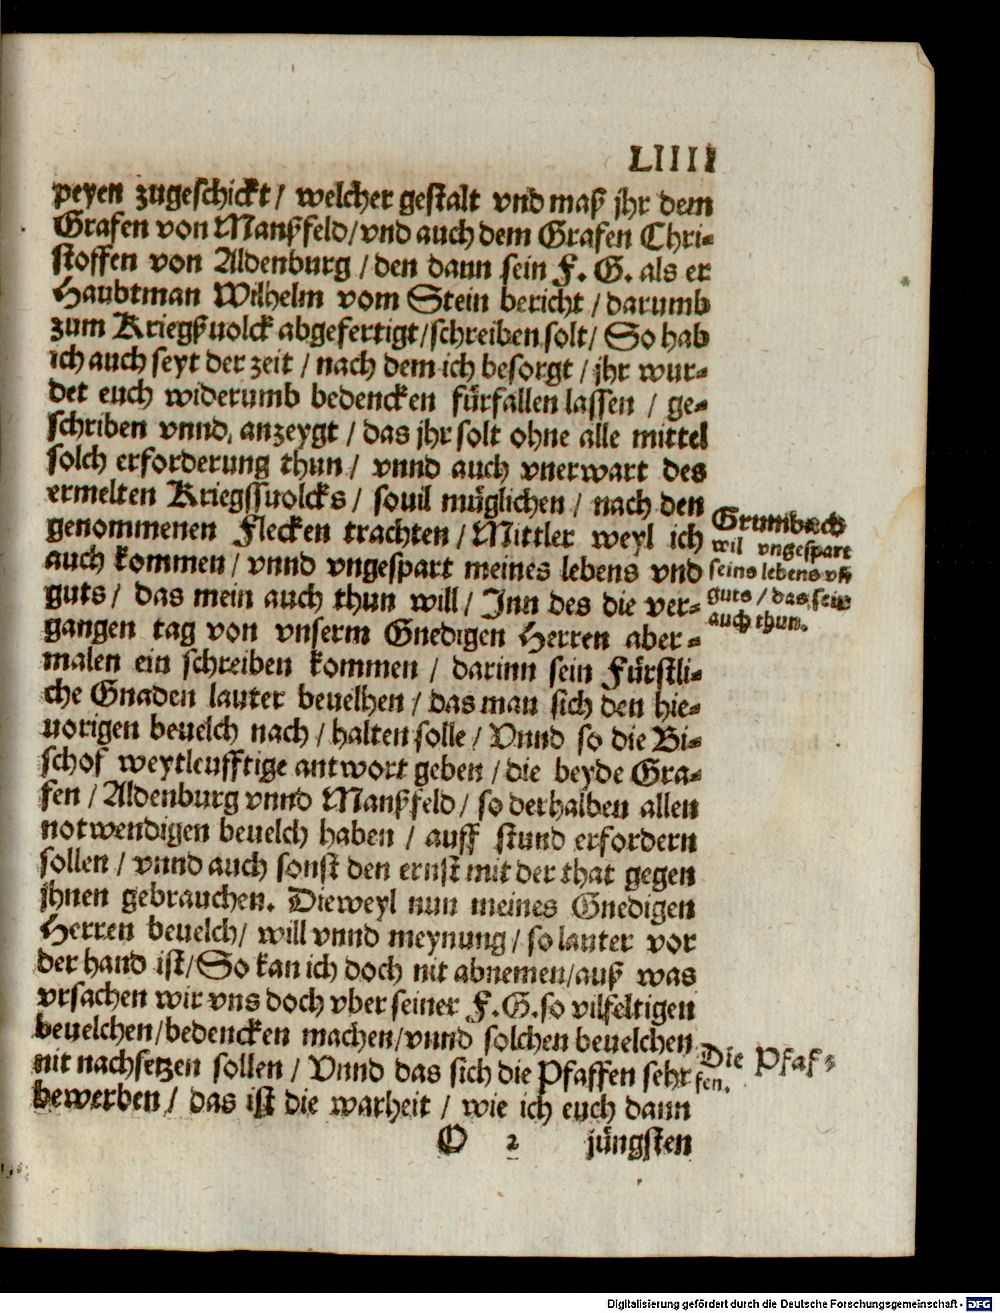 LIIII
peyen zugeschickt / welcher gestalt vnd maß jhr dem
Grafen von Manßfeld/vnd auch dem Grafen Chri-
stoffen von Aldenburg / den dann sein F. G. als er
Haubtman Wilhelm vom Stein bericht / darumb
zum Kriegßuolck abgefertigt/schreiben solt/ So hab
ich auch seyt der zeit / nach dem ich besorgt / jhr wur-
det euch widerumb bedencken fürfallen lassen / ge-
schriben vnnd, anzeygt / das jhr solt ohne alle mittel
solch erforderung thun / vnnd auch vnerwart des
ermelten Kriegssuolcks / souil müglichen / nach den
genommenen Flecken trachten / Mittler weyl ich
auch kommen / vnnd vngespart meines lebens vnd
guts / das mein auch thun will / Inn des die ver-
gangen tag von vnserm Gnedigen Herren aber-
malen ein schreiben kommen / darinn sein Fürstli-
che Gnaden lauter beuelhen / das man sich den hie-
uorigen beuelch nach / halten solle / Vnnd so die Bi-
schof weytleufftige antwort geben / die beyde Gra-
fen / Aldenburg vnnd Manßfeld / so derhalben allen
notwendigen beuelch haben / auff stund erfordern
sollen / vnnd auch sonst den ernst mit der that gegen
jhnen gebrauchen. Dieweyl nun meines Gnedigen
Herren beuelch/ will vnnd meynung / so lauter vor
der hand ist/ So kan ich doch nit abnemen/auß was
vrsachen wir vns doch vber seiner F.G.so vilfeltigen
beuelchen/bedencken machen/vnnd solchen beuelchen
nit nachsetzen sollen / Vnnd das sich die Pfaffen sehr
bewerben / das ist die warheit / wie ich euch dann
O 2 jüngsten
Grumbach
wil vngespart
seins lebens vn̄
guts / das sein
auch thun.
Die Pfaf-
fen.
Digitalisierung gefördert durch die Deutsche Forschungsgemeinschaft - DFG